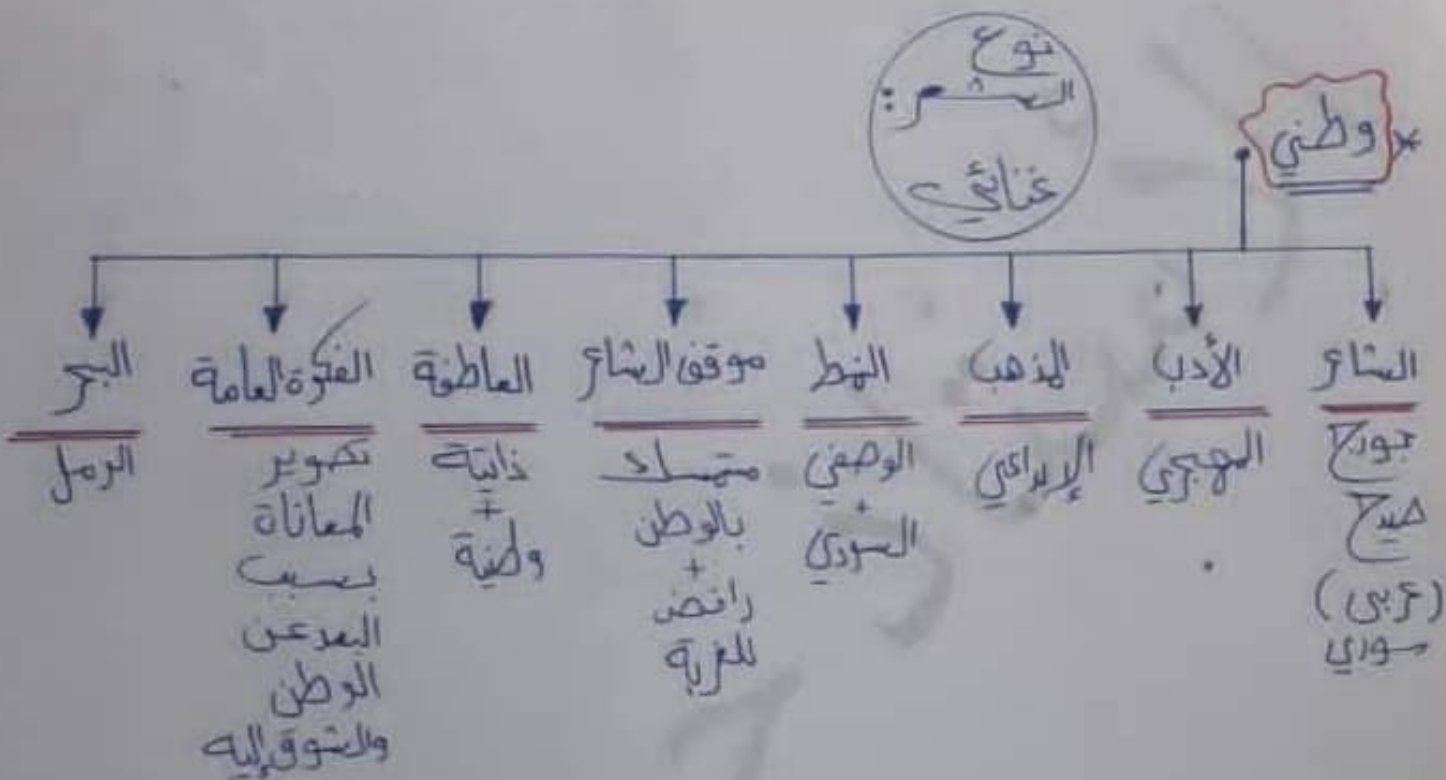 نوع
الشعر:
غنائي
* وطني
الشاعر
جورج
صيدح
(عربي)
سوري
الأدب
المهجري
المذهب
الإبداعي
النمط
الوصفي
+
السردي
موقف الشاعر
متمسك
بالوطن
+
رافض
للغربة
العاطفة
ذاتية
+
وطنية
الفكرة العامة
تصوير
المعاناة
بسبب
البعد عن
الوطن
والشوق إليه
البحر
الرمل